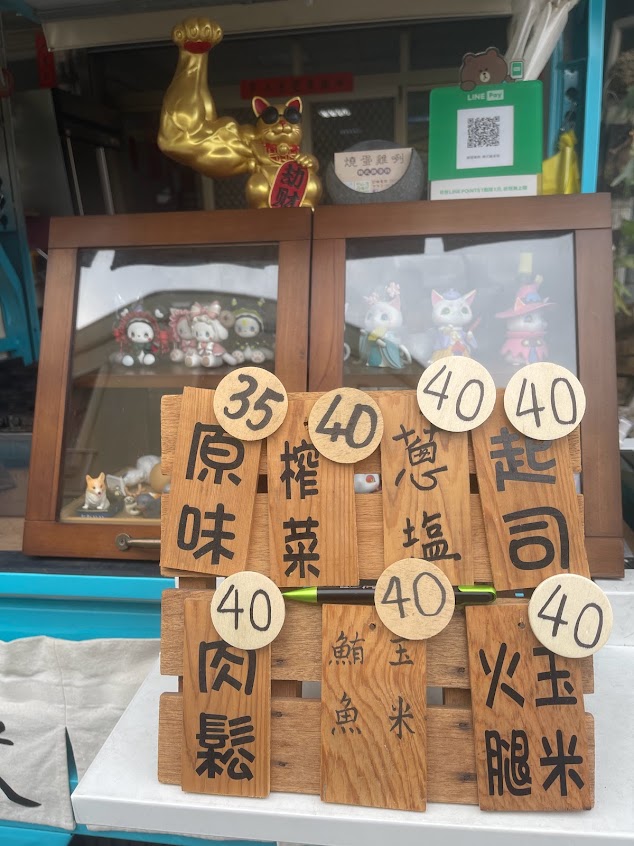 LINE Pay
燒蛋雞咧
劫財
35
原味
40
榨菜
40
蔥塩
40
起司
40
肉鬆
40
鮪魚
玉米
40
火腿
玉米